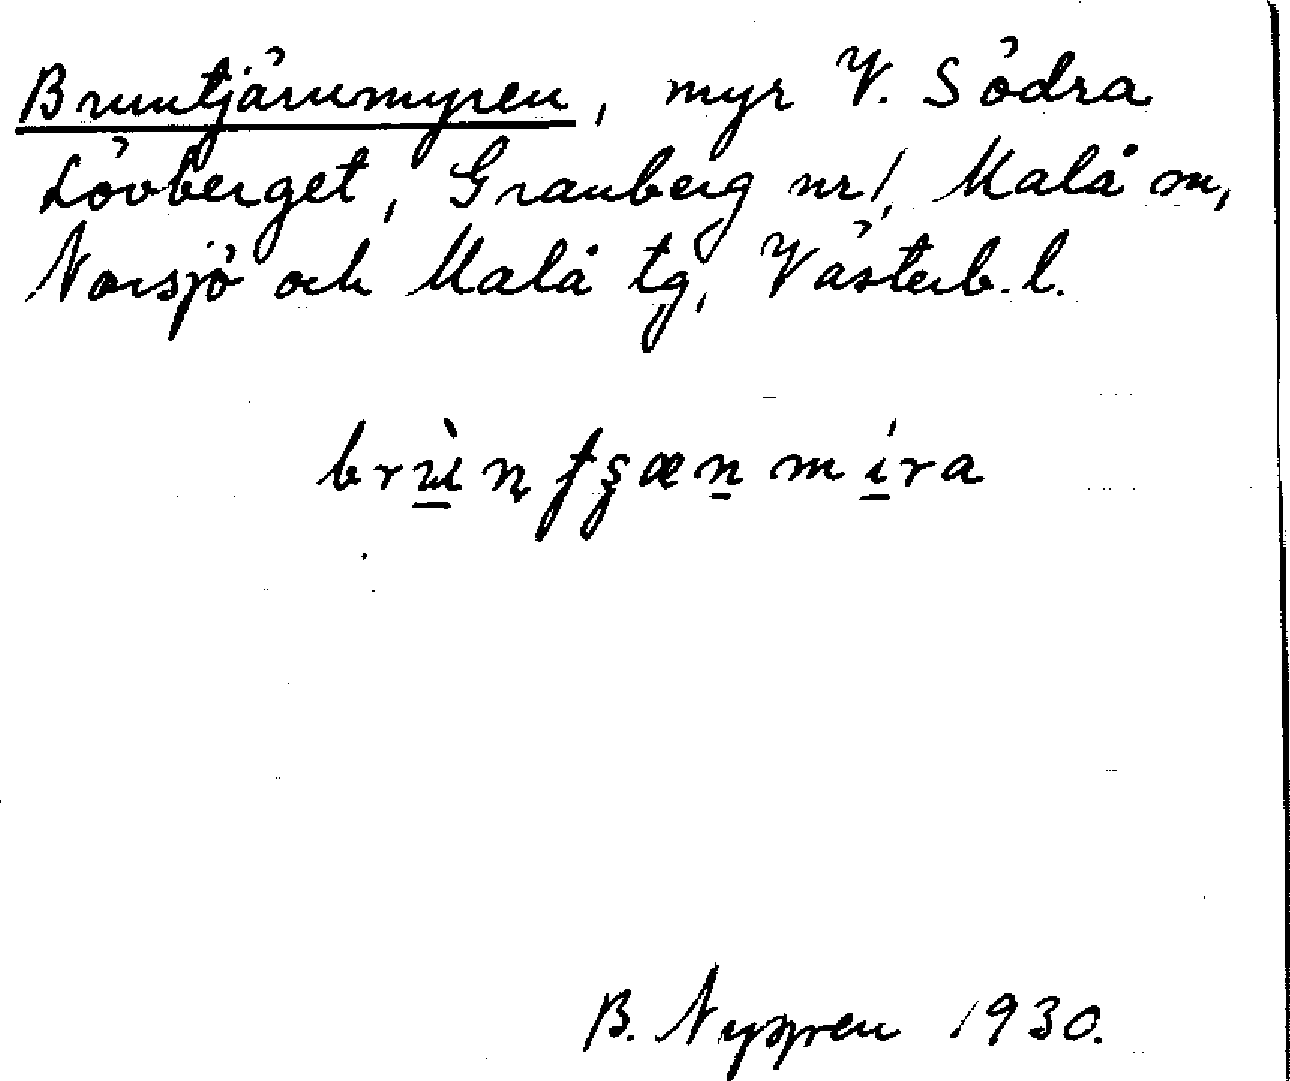 Bruntjärnmyren, myr V. Södra
Lövberget, Granberg nr 1, Malå sn,
Norsjö och Malå tg, Västerb. l.
B. Nygren 1930.